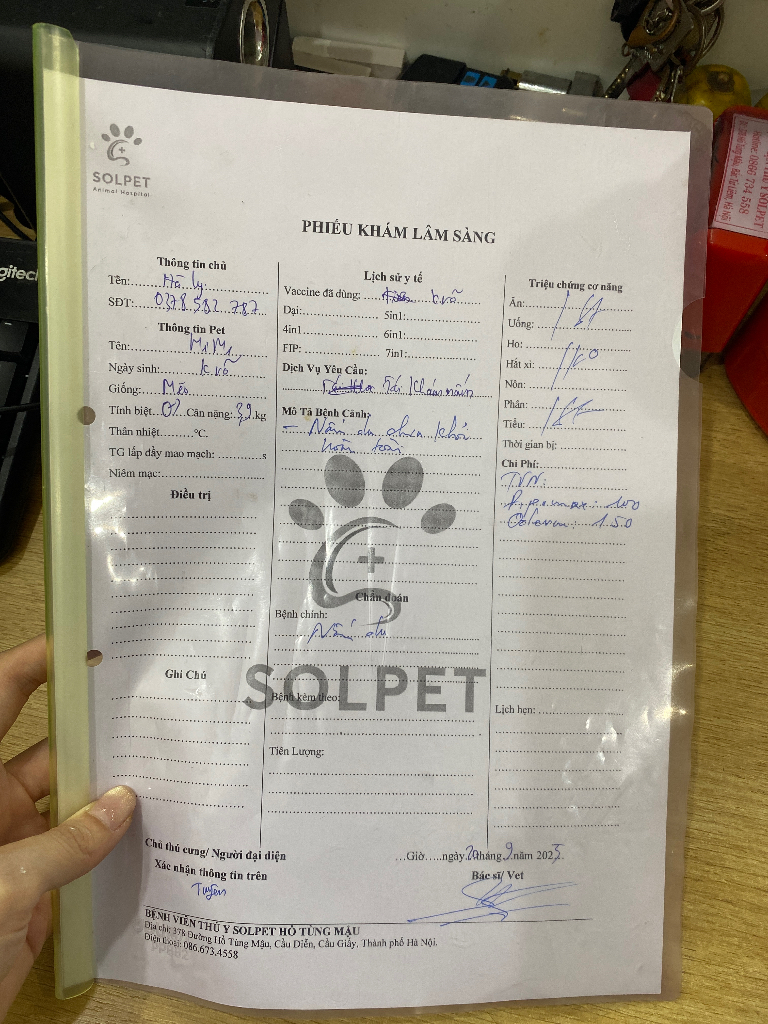 SOLPET
Animal Hospital
PHIẾU KHÁM LÂM SÀNG
Thông tin chủ
Tên: Hà ly
SĐT: 0378.582.787
Thông tin Pet
Tên: MiMi
Ngày sinh: k rõ
Giống: Mèo
Tính biệt: Cân nặng: 3,2 kg
Thân nhiệt °C.
TG lấp đầy mao mạch: s
Niêm mạc:
Điều trị
Ghi Chú
Lịch sử y tế
Vaccine đã dùng: k rõ
Dại: 5in1:
4in1 6in1:
FIP: 7in1:
Dịch Vụ Yêu Cầu:
Tái khám nấm
Mô Tả Bệnh Cảnh:
- Nấm da chưa khỏi
hoàn toàn
Chẩn đoán
Bệnh chính:
Nấm da
SOLPET
Bệnh kèm theo:
Tiên Lượng:
Triệu chứng cơ năng
Ăn:
Uống:
Ho:
Hắt xì:
Nôn:
Phân:
Tiểu:
Thời gian bị:
Chi Phí:
: 100
: 150
Lịch hẹn:
Chủ thú cưng/ Người đại diện
Xác nhận thông tin trên
Tuyên
Giờ ngày 20 tháng 9 năm 2023.
Bác sĩ/ Vet
BỆNH VIỆN THÚ Y SOLPET HỒ TÙNG MẬU
Địa chỉ: 378 Đường Hồ Tùng Mậu, Cầu Diễn, Cầu Giấy, Thành phố Hà Nội.
Điện thoại: 086.673.4558
logitech
Y SOLPET
Hotline: 0866 734 558